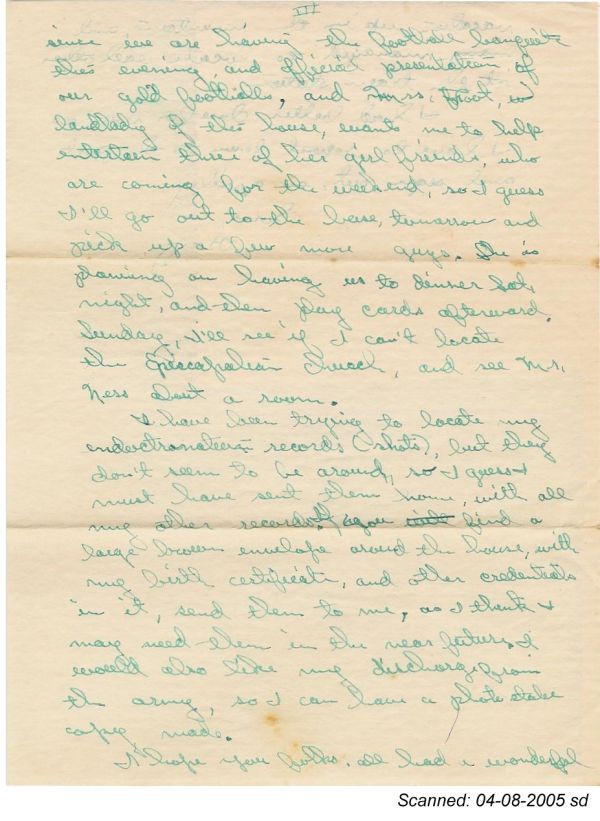 III
since we are having the football banquet
this evening, and official presentation of
our gold footballs, and Mrs. Foot,
landlady of this house, wants me to help
entertain three of her girl friends, who
are coming for the weekend, so I guess
I'll go out to the base, tomorrow and
pick up a few more guys. She is
planning on having us to dinner Sat.
night, and then play cards afterward.
Sunday, I'll see if I can't locate
the Episcapalian Church, and see Mr.
Ness about a room.
I have been trying to locate my
records (shots), but they
don't seem to be around, so I guess I
must have sent them home, with all
my other records. If you find a
large brown envelope around the house, with
my birth certificate, and other credentials
in it, send them to me, as I think I
may need them in the near future. I
would also like my discharge from
the army, so I can have a photo stake
copy made.
I hope you folks all had a wonderful
Scanned: 04-08-2005 sd